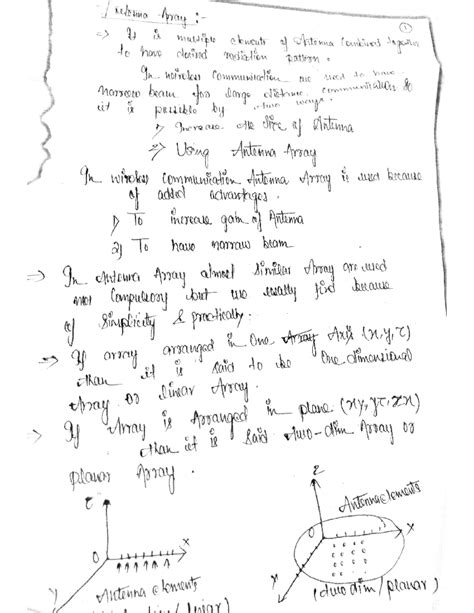 Antenna Array :-
①
=> It is multiple elements of Antenna Combined together
to have desired radiation pattern.
In wireless communication we need to have
narrow beam for large distance communication &
it is possible by two ways.
1) Increase the Size of Antenna
2) Using Antenna Array
In wireless communication Antenna Array is used because
of added advantages.
1) To increase gain of Antenna
2) To have narrow beam
-> In Antenna Array almost Similar Array are used
not Compulsory but we usually find because
of Simplicity & practically.
=> If array arranged in One Array Axis (x, y, z)
than it is Said to be One dimensional
Array or linear Array.
=> If Array is Arranged in plane (xy, yz, zx)
than it is said two-dim Array or
planar Array.
z
z
Antenna elements
O
x
O
x
Antenna elements
y
z
(two dim / planar)
linear)